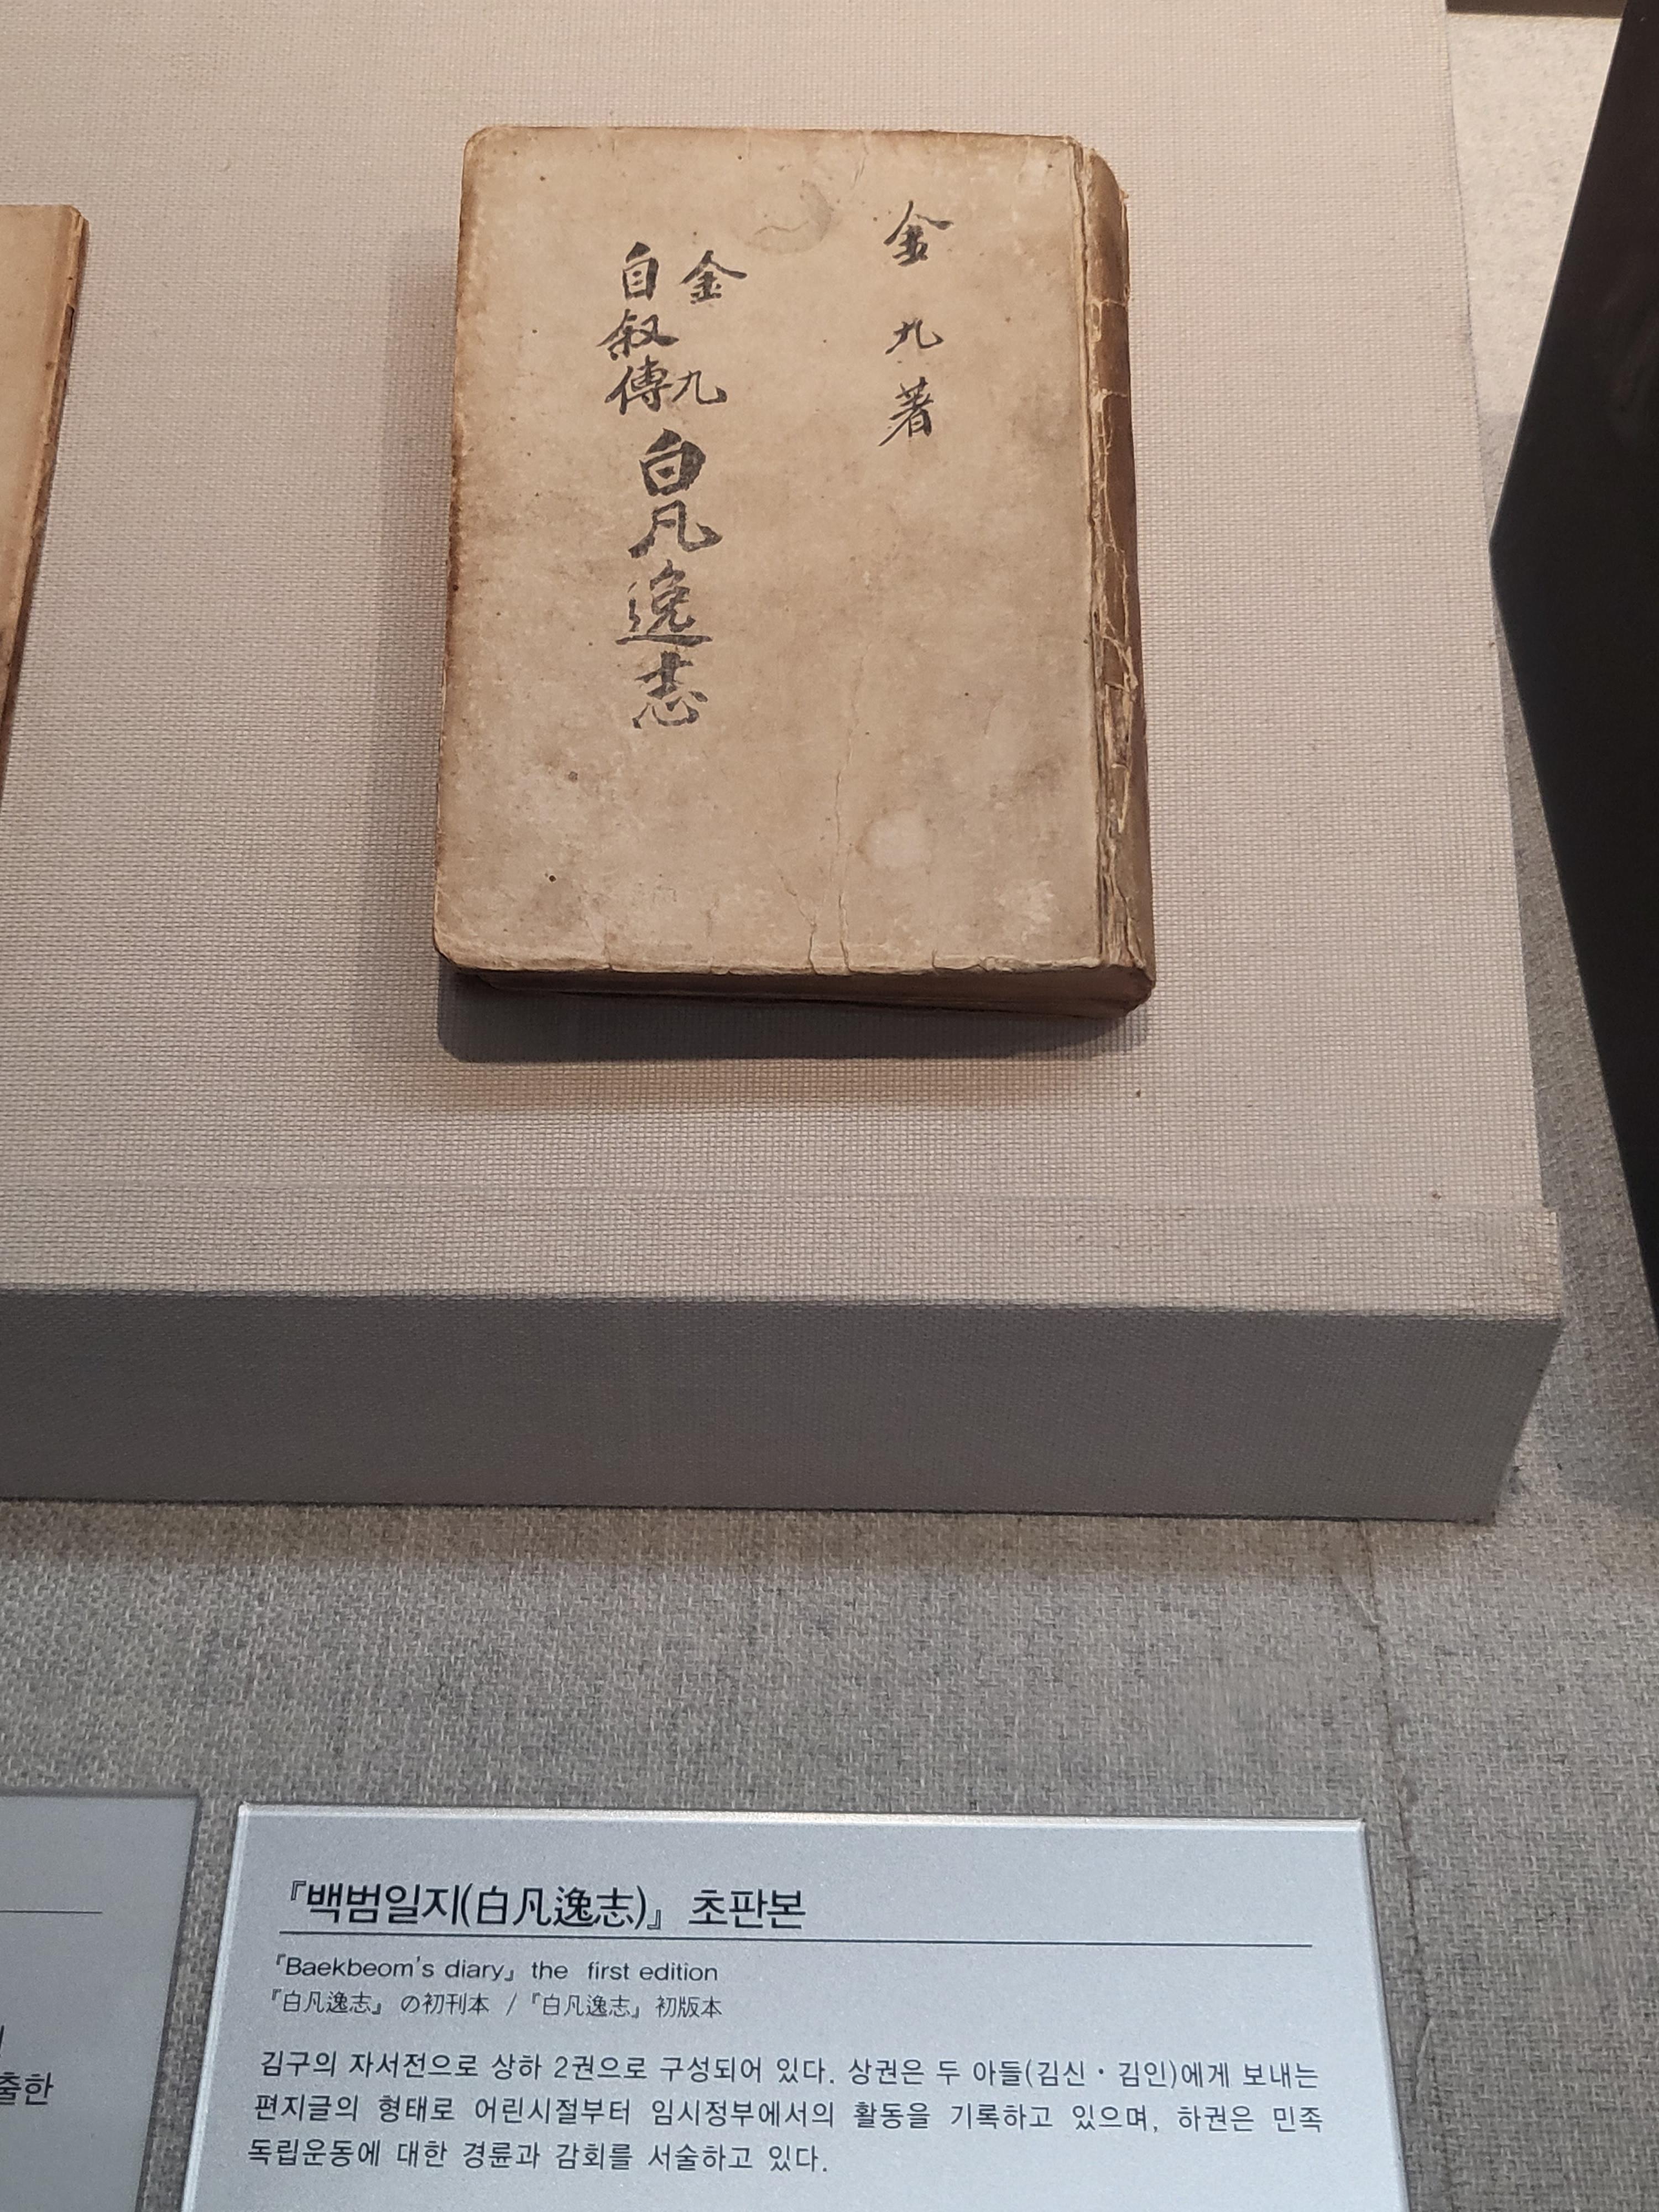 金九著
金九
自叙傳
白凡逸志
『백범일지(白凡逸志)』 초판본
『Baekbeom's diary』 the first edition
『白凡逸志』 の初刊本 / 『白凡逸志』 初版本
김구의 자서전으로 상하 2권으로 구성되어 있다. 상권은 두 아들(김신・김인)에게 보내는
편지글의 형태로 어린시절부터 임시정부에서의 활동을 기록하고 있으며, 하권은 민족
독립운동에 대한 경륜과 감회를 서술하고 있다.
출한